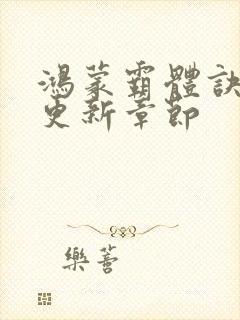 鴻蒙霸體訣
更新章節
樂薈